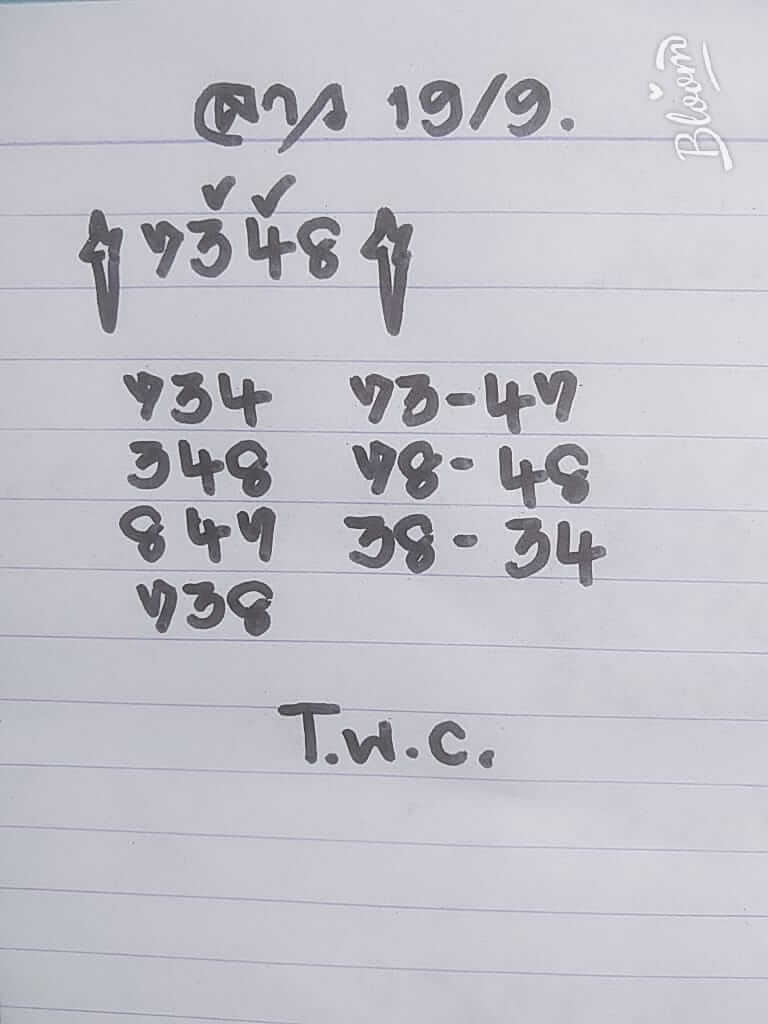 ลาว 19/9.
Bloom
7348
734 73-47
348 78-48
847 38-34
738
T.W.C.